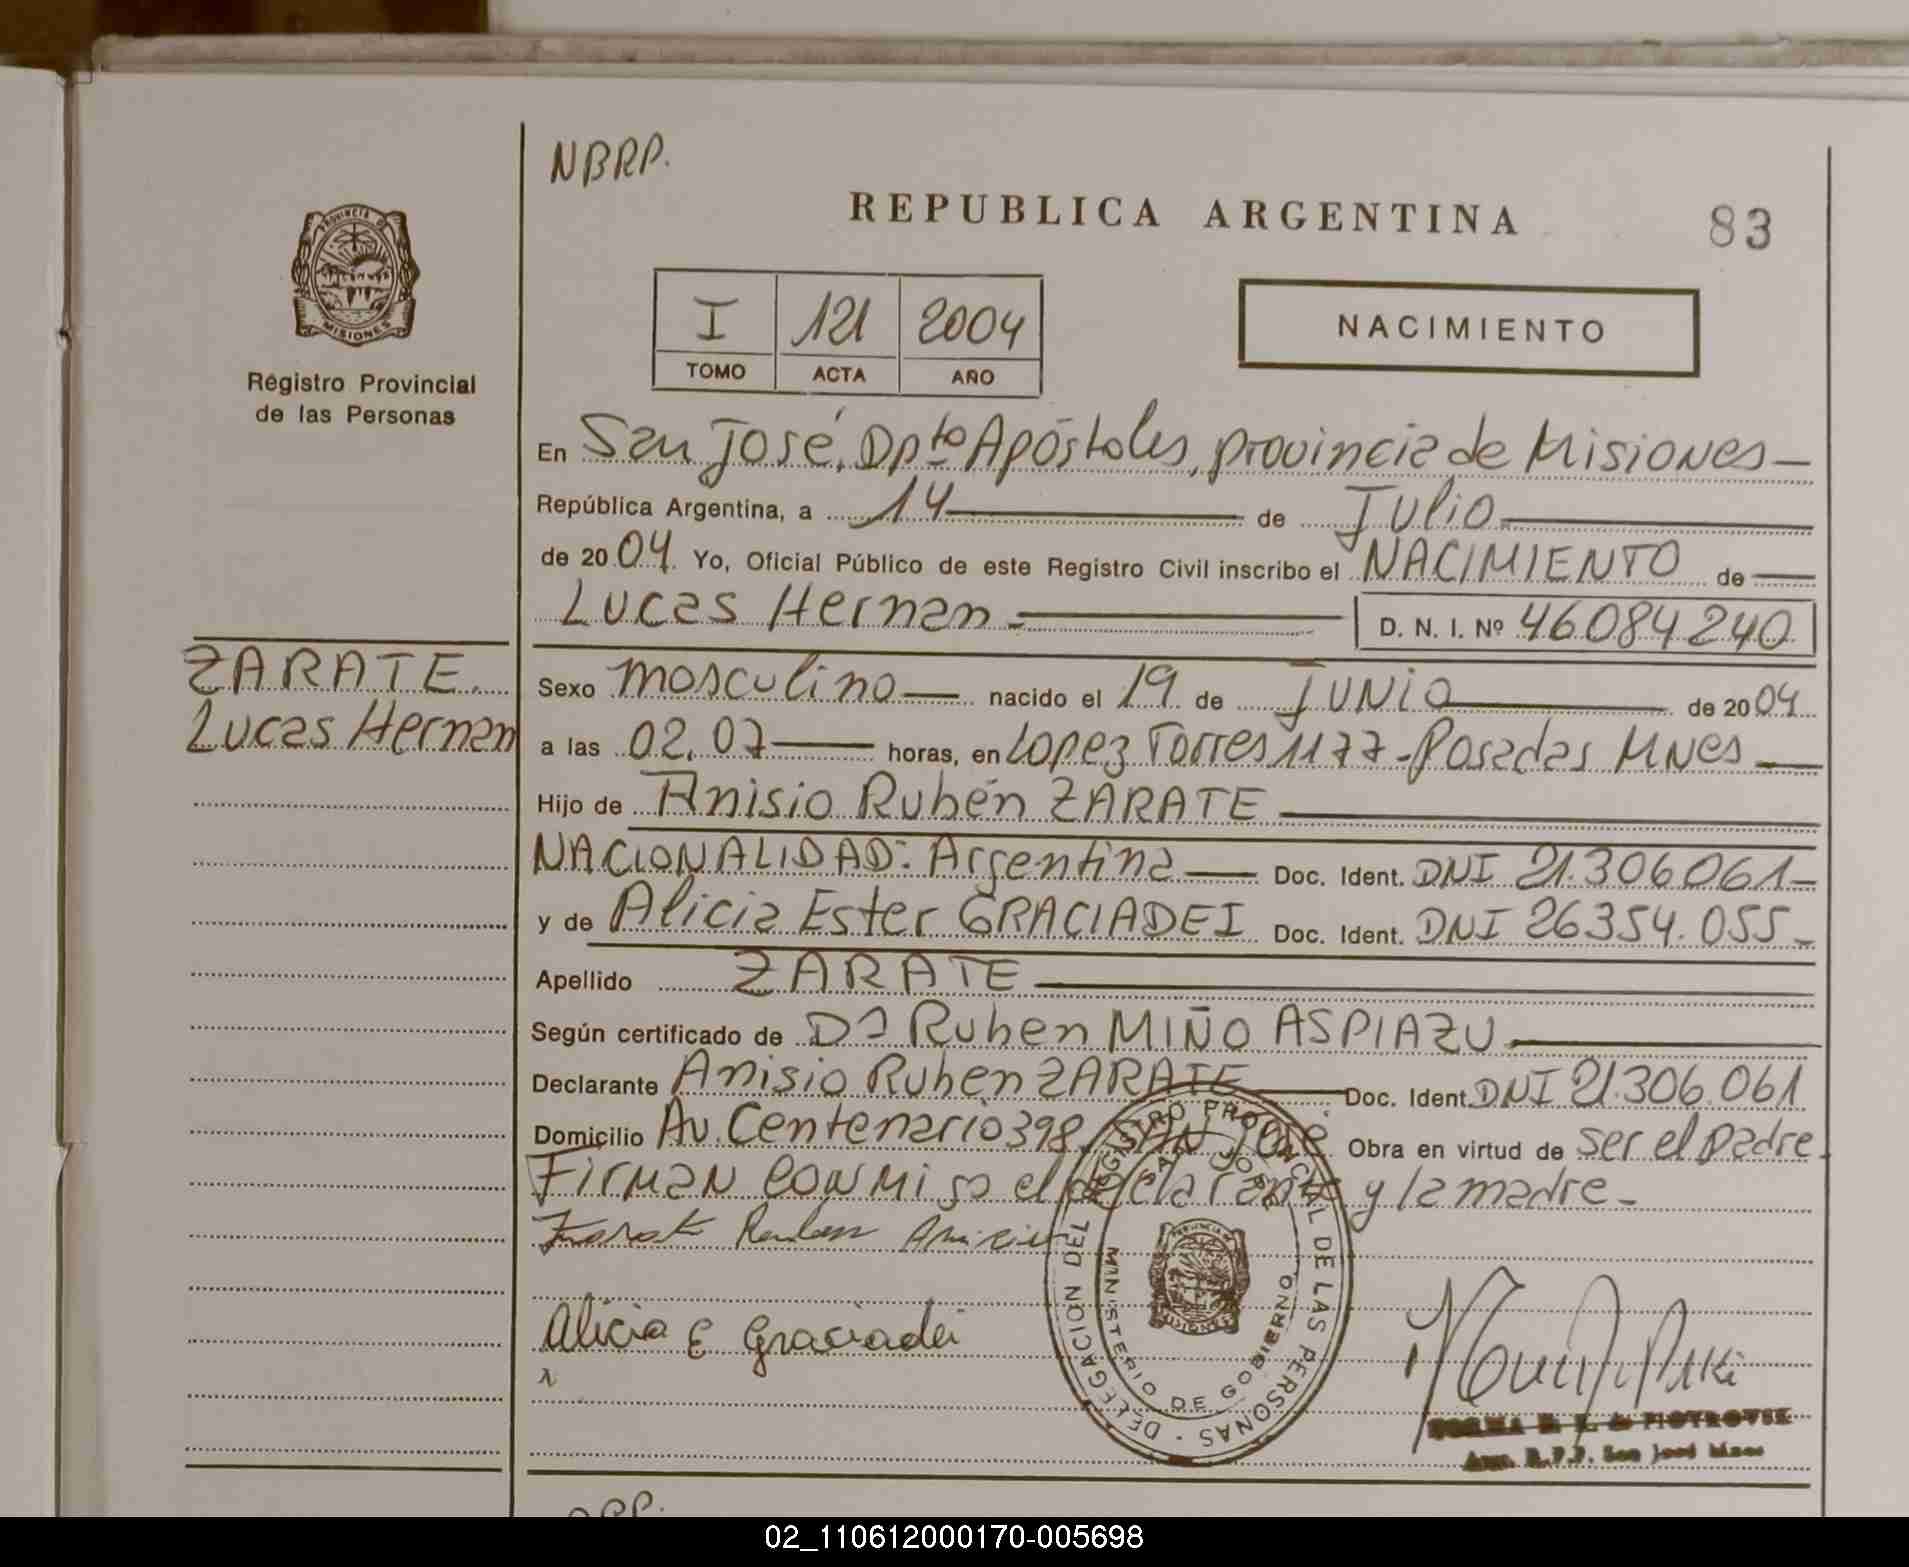 NBRP.
REPUBLICA ARGENTINA
83
PROVINCIA D
MISIONES
Registro Provincial
de las Personas
I 121 2004
TOMO ACTA AÑO
NACIMIENTO
En San José, Dpto Apóstoles, provincia de Misiones
República Argentina, a 14 de Julio
de 2004. Yo, Oficial Público de este Registro Civil inscribo el NACIMIENTO de
Lucas Hernan D. N. I. Nº 46084240
ZARATE.
Lucas Hernan
Sexo masculino nacido el 19 de JUNIO de 2004
a las 02.07 horas, en Lopez Torres 1177 - Posadas Mnes
Hijo de Anisio Rubén ZARATE
NACIONALIDAD: Argentina Doc. Ident. DNI 21.306061
y de Alicia Ester GRACIADEI Doc. Ident. DNI 26354.055
Apellido ZARATE
Según certificado de Dr Ruben MIÑO ASPIAZU
Declarante Anisio Ruben ZARATE Doc. Ident. DNI 21.306.061
Domicilio Av. Centenario 398, SAN José Obra en virtud de ser el padre.
Firman conmigo el declarante y la madre
Zarate Ruben Anisio
Alicia E Graciadei
DELEGACION DEL REGISTRO PROVINCIAL DE LAS PERSONAS
SAN JOSE
MINISTERIO DE GOBIERNO
MISIONES
NORMA DE PIOTROVSK
R.P.P. San José Mnes
02_110612000170-005698